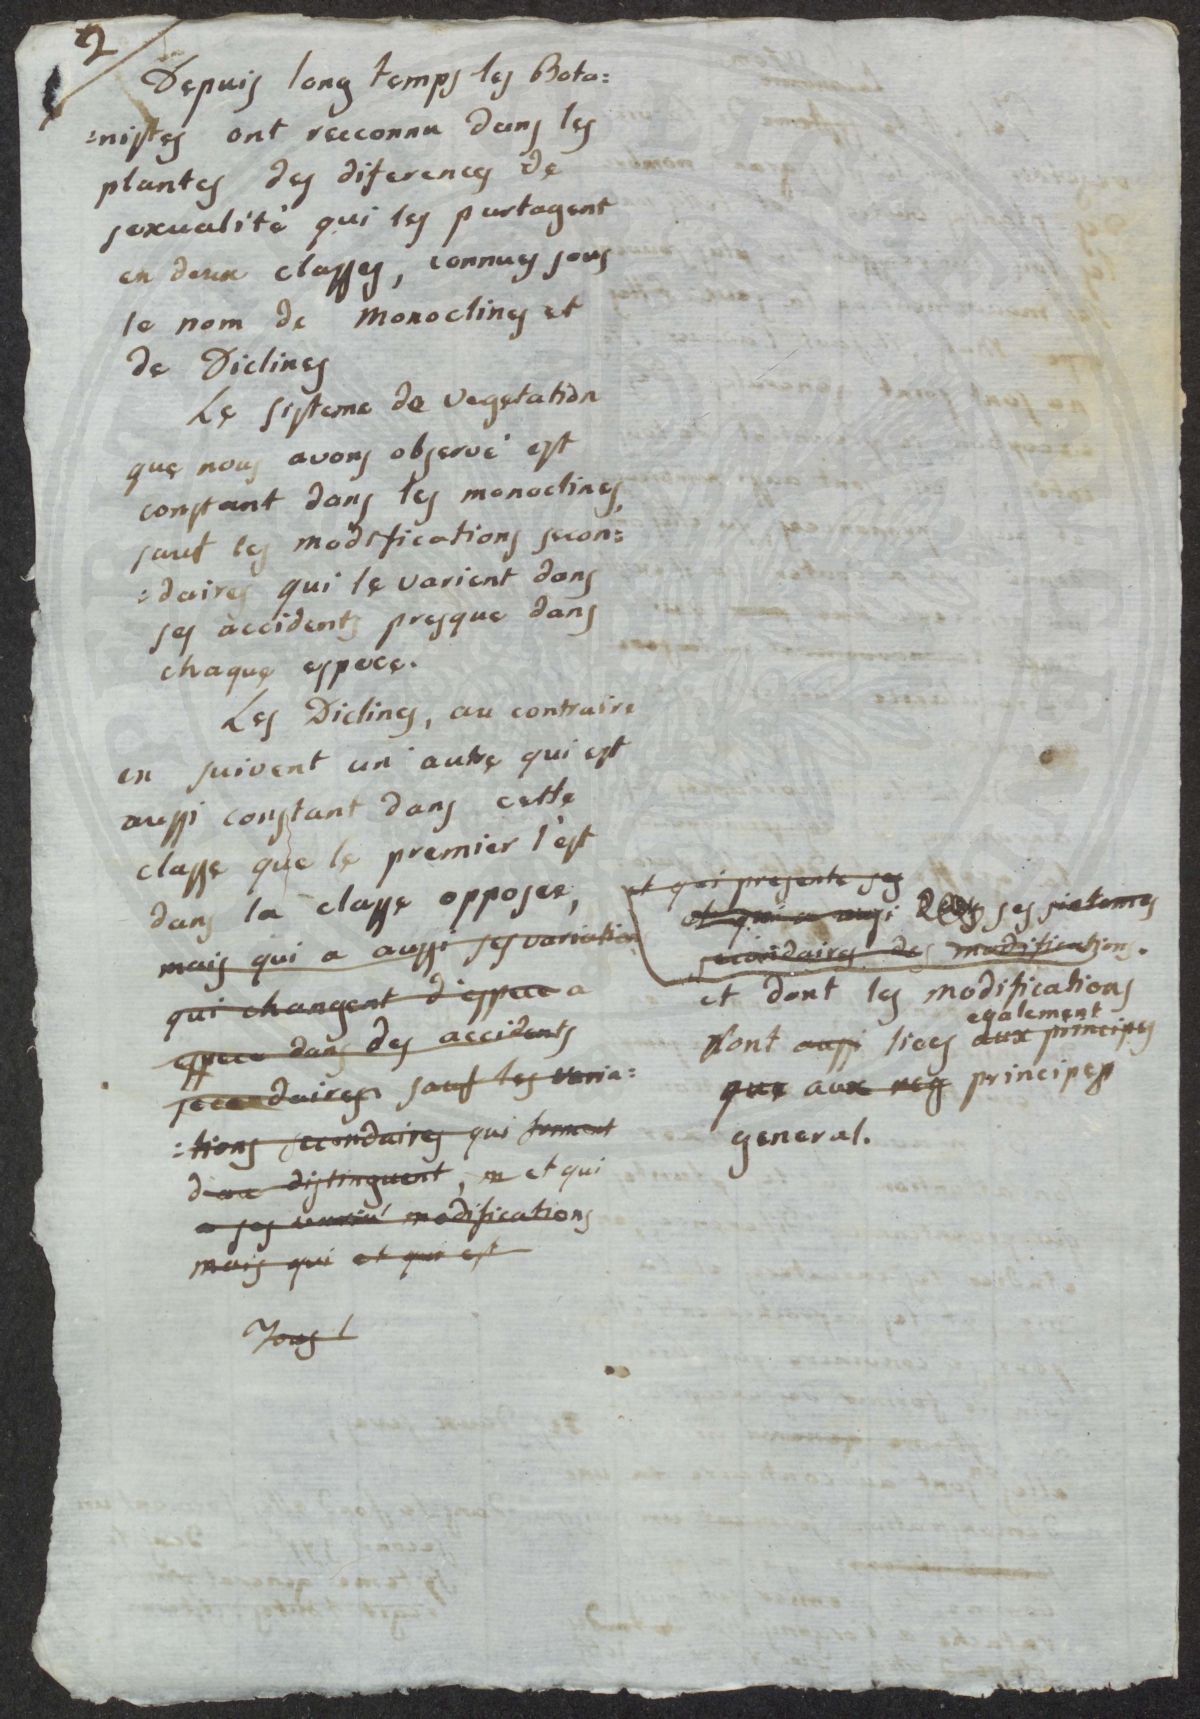 2
Depuis long temps les Bota:
:nistes ont recconnu dans les
plantes des diferences de
sexualité qui les partagent
en deux classes, connues sous
le nom de Monoclines et
de Diclines
Le sisteme de vegetation
que nous avons observé est
constant dans les monoclines,
sauf les modifications secon:
:daires qui le varient dans
ses accidents presque dans
chaque espece.
Les Diclines, au contraire
en suivent un autre qui est
aussi constant dans cette
classe que le premier l'est
dans la classe opposee,
mais qui a aussi ses variations
qui changent d'espece a
espece dans des accidents
secondaires sauf les varia:
:tions secondaires qui forment
distinguent, et qui
a ses modifications
mais qui et qui est
Tous l
et qui presente ses
et qui a aussi ses sistemes
secondaires des modifications.
et dont les modifications
egalement
sont aussi liees aux principes
que aux principes
general.